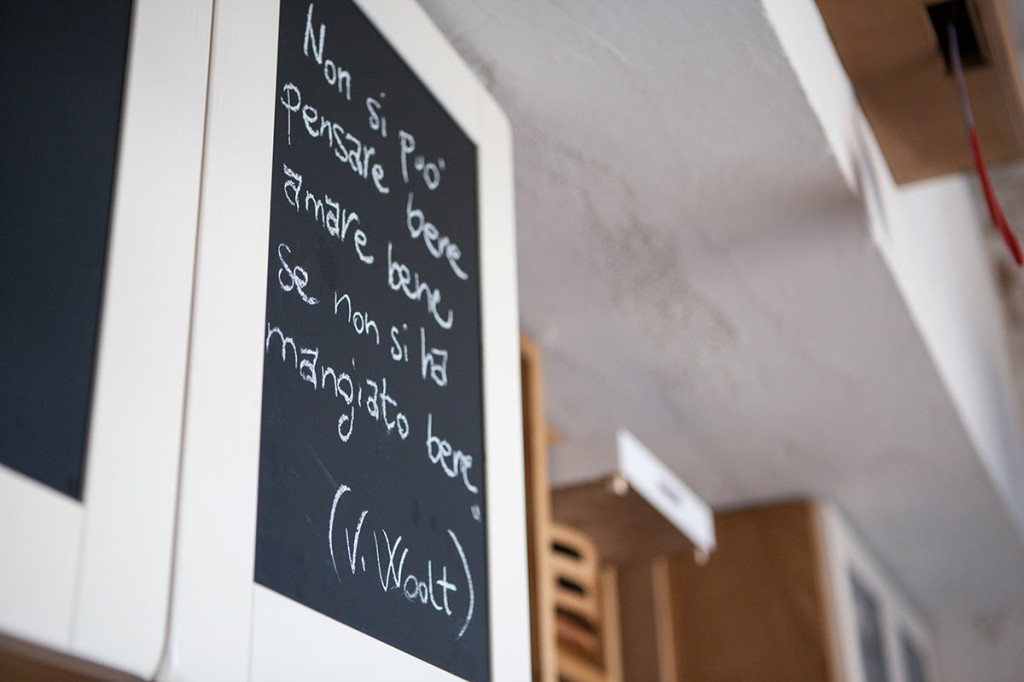 Non si può
pensare bene
amare bene
se non si ha
mangiato bene
(V. Woolt)